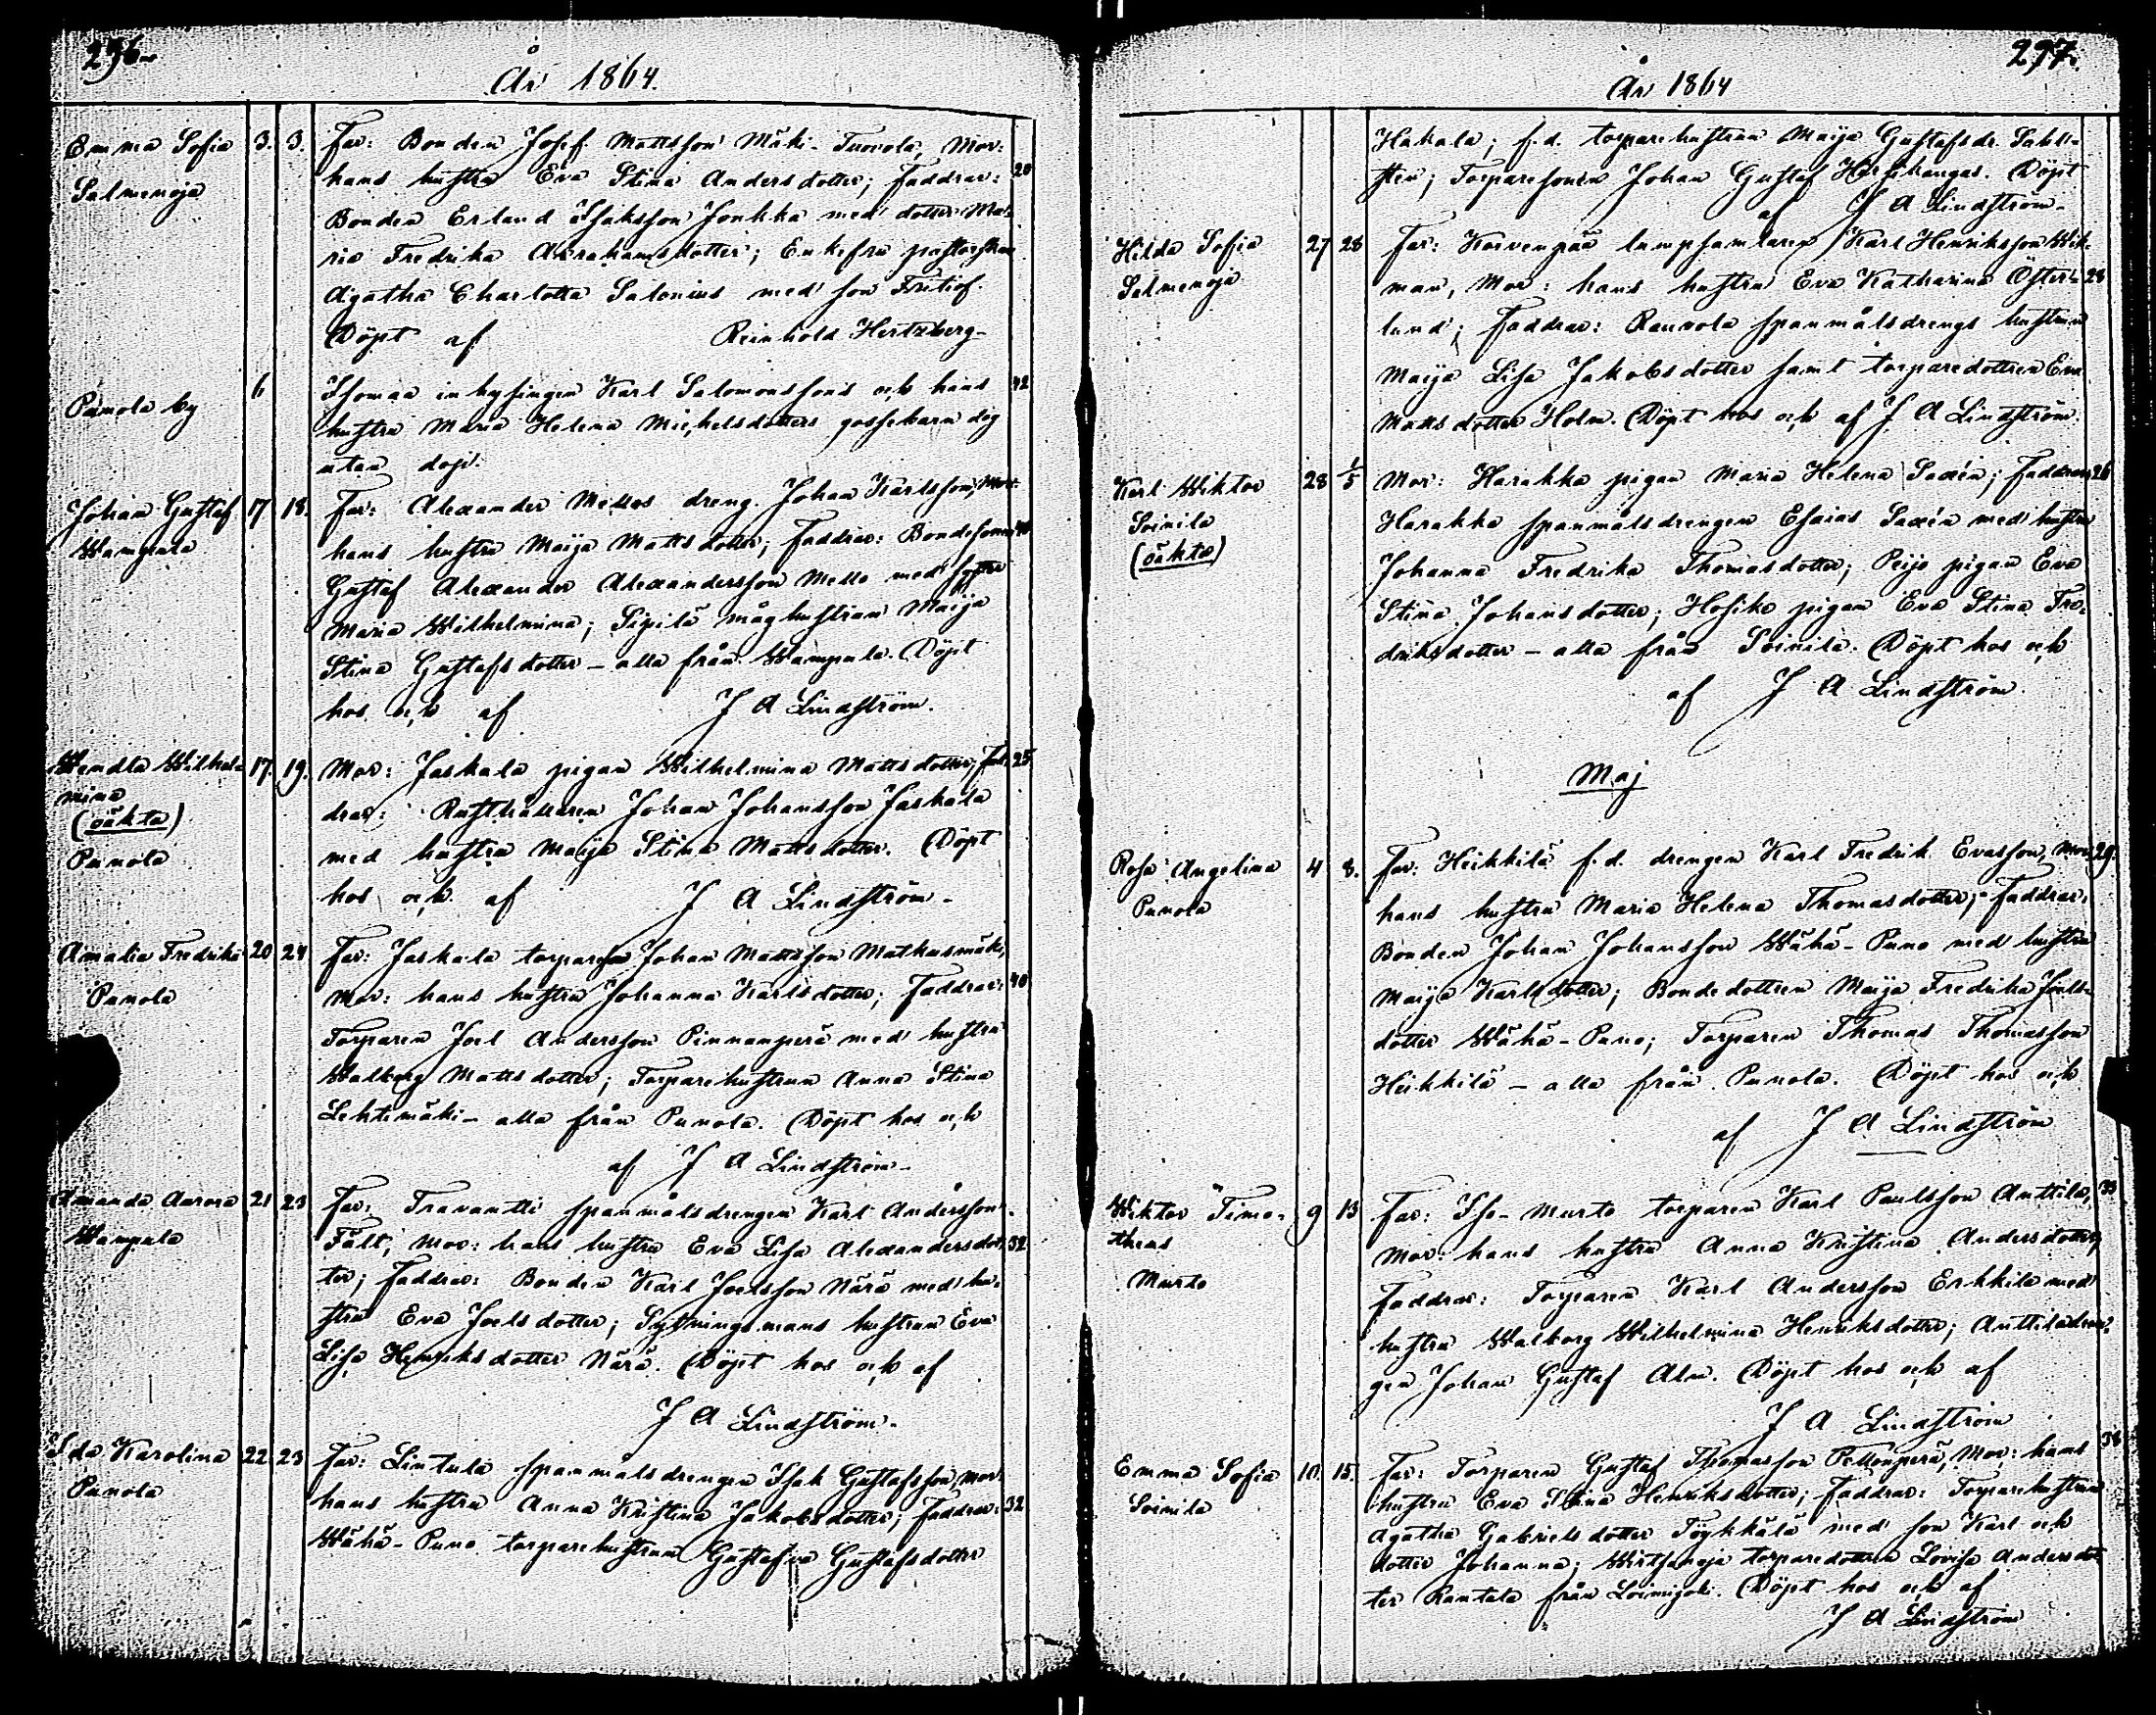 296.
År 1864.
Emma Sofia 3. 3. Far: Bonden Josef Mattsson Mäki-Tuovola, Mor:
Salmenoja hans hustru Eva Stina Andersdotter; Faddrar: 20
Bonden Erland Isaksson Jonkka med dotter Ma-
ria Fredrika Abrahamsdotter; Enkefru pastorskan
Agatha Charlotta Salonius med son Fritiof.
Döpt af Reinhold Hertzberg
Punola by 6 Thomaa inhysingen Karl Salomonssons och hans 42
hustru Maria Helena Michelsdotters gossebarn dog
utan dop.
Johan Gustaf 17 18. Far: Alexander Mellos dreng Johan Karlsson, Mor:
Wampula hans hustru Maija Mattsdotter; Faddrar: Bondesonen 40
Gustaf Alexander Alexandersson Mello med syster
Maria Wilhelmina; Sipilä måghustrun Maija
Stina Gustafsdotter - alla från Wampula. Döpt
hos och af J A Lindström.
Wendla Wilhel- 17. 19. Mor: Jaskala pigan Wilhelmina Mattsdotter; Fad- 25
mina
(oäkta) drar: Rusthållaren Johan Johansson Jaskala
Punola med hustru Maija Stina Mattsdotter. Döpt
hos och af J A Lindström.
Amalia Fredrika 20 24 Far: Jaskala torparen Johan Mattsson Mathusmäki,
Punola Mor: hans hustru Johanna Karlsdotter; Faddrar: 40
Torparen Joel Andersson Pinnanperä med hustru
Walborg Mattsdotter; Torparehustrun Anna Stina
Lehtimäki - alla från Punola. Döpt hos och
af J A Lindström.
Amanda Aurora 21 23 Far: Travantti spanmålsdrengen Karl Andersson
Wampula Fält, Mor: hans hustru Eva Lisa Alexandersdot- 32
ter; Faddrar: Bonden Karl Joelsson Närä med hu-
stru Eva Joelsdotter; Sytningsmans hustrun Eva
Lisa Henriksdotter Närä. Döpt hos och af
J A Lindström.
Ida Karolina 22. 23 Far: Lintula spanmålsdrengen Isak Gustafsson, Mor:
Punola hans hustru Anna Kristina Jakobsdotter; Faddrar: 32
Wähä-Puno torparehustrun Gustafva Gustafsdotter
297.
År 1864
Hakala; f.d. torparehustrun Maija Gustafsdr.
Torparesonen Johan Gustaf Hirsikangas. Döpt
af J A Lindström.
Hilda Sofia 27 28 Far: Korvenpää lumpsamlaren Karl Henriksson Wik-
Salmenoja man, Mor: hans hustru Eva Katharina Öster- 28
lund; Faddrar: Rauvola spanmålsdrengs hustrun
Maija Lisa Jakobsdotter samt torparedottren Eva
Mattsdotter Holm. Döpt hos och af J A Lindström.
Karl Wiktor 28 1/5 Mor: Harakka pigan Maria Helena Saxén; Faddrar: 26
Soinila Harakka spanmålsdrengen Esaias Saxén med hustru
(oäkta) Johanna Fredrika Thomasdotter; Peijo pigan Eva
Stina Johansdotter; Hosiko pigan Eva Stina Fre-
driksdotter - alla från Soinila. Döpt hos och
af J A Lindström.
Maj
Rosa Angelina 4 8. Far: Heikkilä f.d. drengen Karl Fredrik Evasson, Mor: 29.
Punola hans hustru Maria Helena Thomasdotter; Faddrar:
Bonden Johan Johansson Wähä-Puno med hustru
Maija Karlsdotter; Bondedottren Maija Fredrika Joels-
dotter Wähä-Puno; Torparen Thomas Thomasson
Heikkilä - alla från Punola. Döpt hos och
af J A Lindström
Wiktor Timo- 9 13 Far: Iso-Murto torparen Karl Paulsson Anttila, 33
theus Mor: hans hustru Anna Kristina Andersdotter;
Murto Faddrar: Torparen Karl Andersson Erkkilä med
hustru Walborg Wilhelmina Henriksdotter; Anttila dren-
gen Johan Gustaf Alm. Döpt hos och af
J A Lindström
Emma Sofia 10. 15. Far: Torparen Gustaf Thomasson Pellonperä, Mor: hans 38
Soinila hustru Eva Stina Henriksdotter; Faddrar: Torparehustrun
Agatha Gabrielsdotter Töykkälä med son Karl och
dotter Johanna; Wirtsanoja torparedottren Lovisa Andersdot-
ter Rantala från Loimijoki. Döpt hos och af
J A Lindström